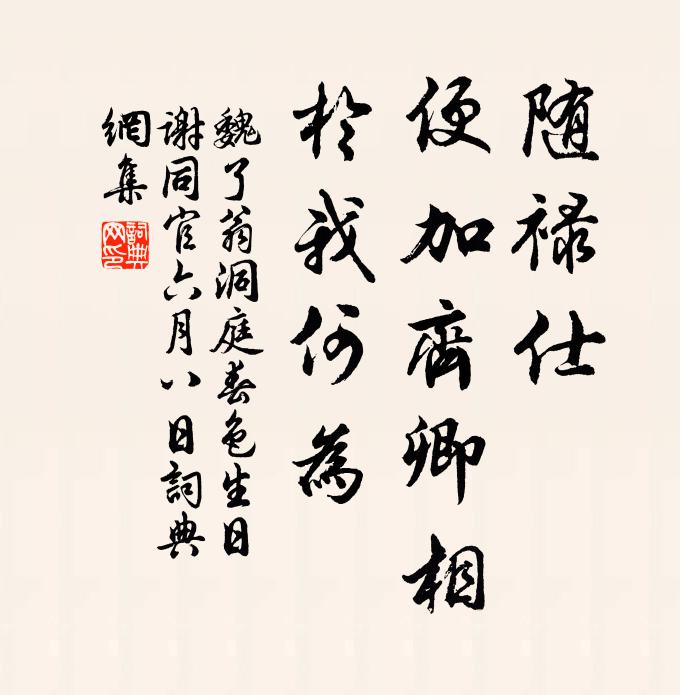 随禄仕
便加齊卿相
於我何為
魏了翁洞庭春色生日
謝同官六月八日詞典
網集
詞典
网印